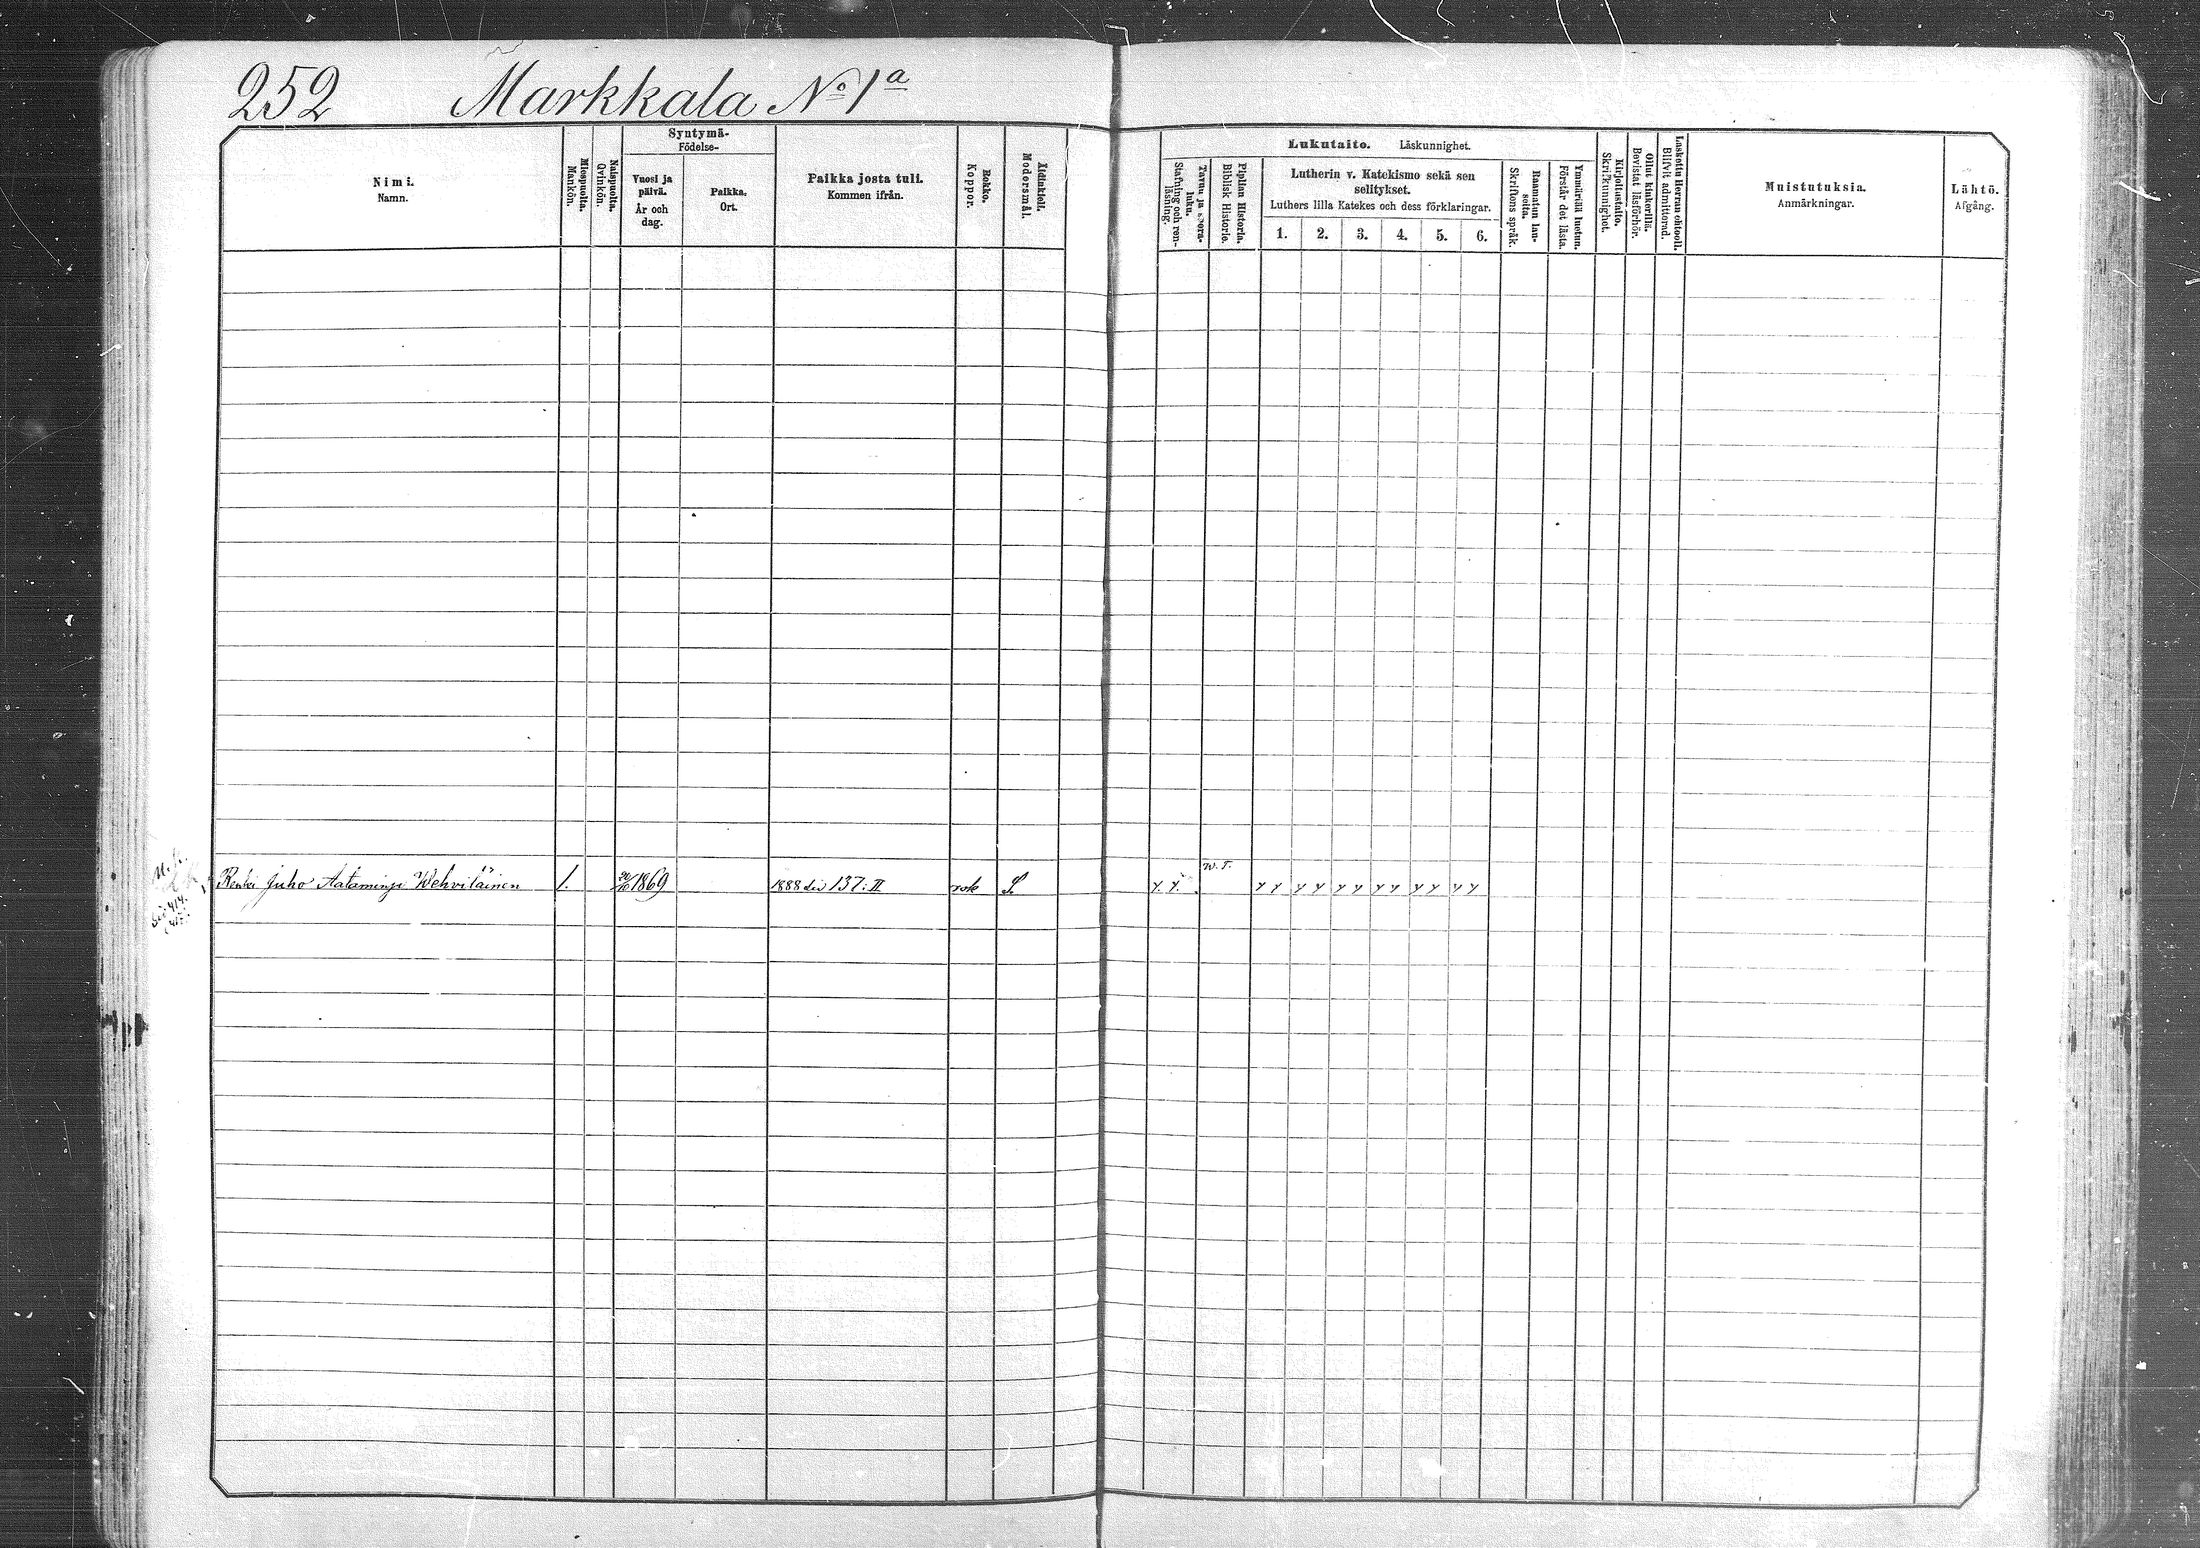 252 Markkala No 1a
Nimi.
Namn.
Miespuolta.
Mankön.
Naispuolta.
Qvinkön.
Syntymä-
Födelse-
Vuosi ja
päivä.
År och
dag.
Paikka.
Ort.
Paikka josta tuli.
Kommen ifrån.
Rokko.
Koppor.
Äidinkieli.
Modersmål.
Lukutaito. Läskunnighet.
Tavuu ja sisera-
luku.
Stafning och ren-
läsning.
Piplian Historia.
Biblisk Historie.
Lutherin v. Katekismo sekä sen
selitykset.
Luthers lilla Katekes och dess förklaringar.
1. 2. 3. 4. 5. 6.
Raamatun lau-
seita.
Skriftens språk.
Ymmärtää luetun.
Förstår det lästa.
Kirjoitustaito.
Skrifkunnighet.
Ollut kinkerillä.
Bevistat läsförhör.
Laskettu Herran ehtooll.
Blifvit admitterad.
Muistutuksia.
Anmärkningar.
Lähtö.
Afgång.
W. T.
Renki Juho Aataminp. Wehviläinen 1. 20/10 1869 1888 siv 137: II rok S. y. y. y y y y y y y y y y y y